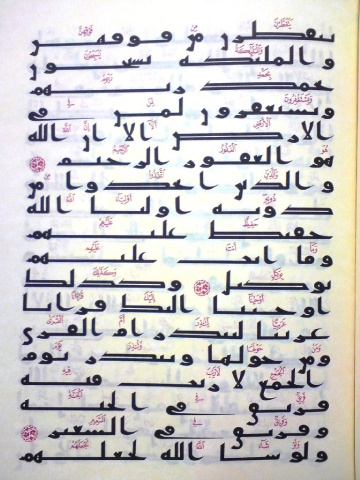 يتفطرن من فوقهن
والملئكة يسبحون
بحمد ربهم
ويستغفرون لمن في
الارض الا ان الله
هو الغفور الرحيم
والذين اتخذوا من
دونه اوليا الله
حفيظ عليهم
وما انت عليهم
بوكيل وكذلك
اوحينا اليك قرانا
عربيا لتنذر ام القرى
ومن حولها وتنذر يوم
الجمع لا ريب فيه
فريق في الجنة
وفريق في السعير
ولو شا الله لجعلهم